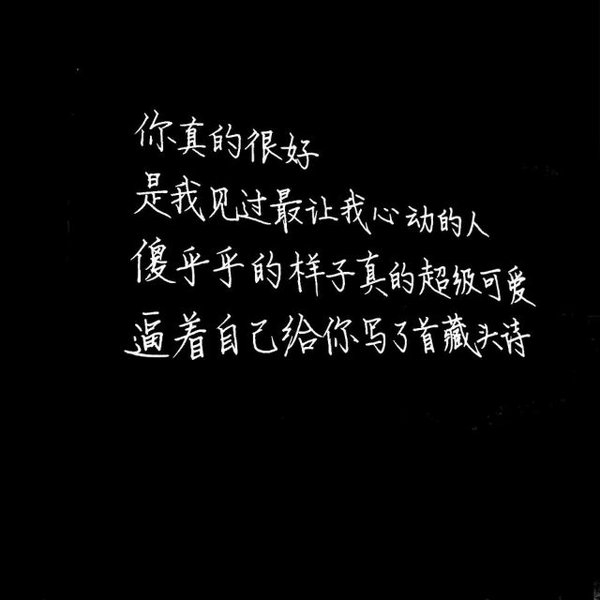 你真的很好
是我见过最让我心动的人
傻乎乎的样子真的超级可爱
逼着自己给你写了首藏头诗